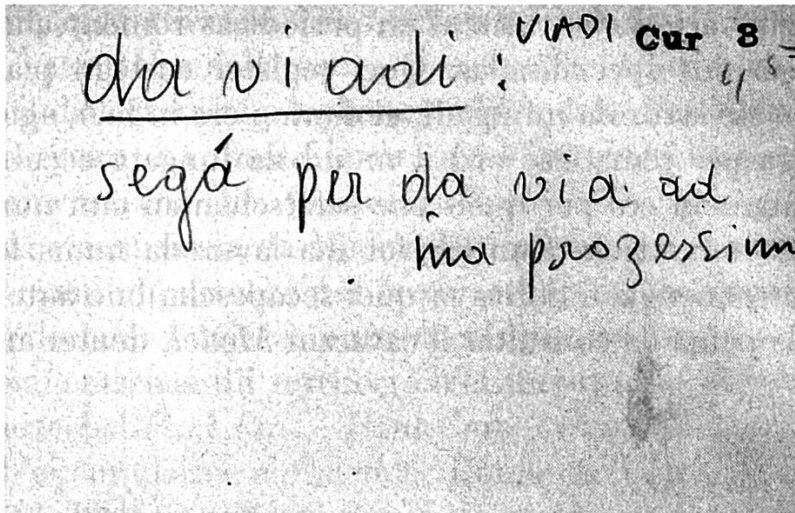 da viadi: VIADI Cur 8
segá per da via ad
ina prozessiun